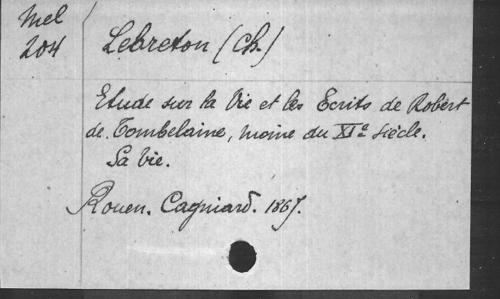 Mel
204
Lebreton (Ch.)
Etude sur la Vie et les Ecrits de Robert
de Tombelaine, moine du XIe siècle.
Sa Vie.
Rouen. Cagniard. 1867.